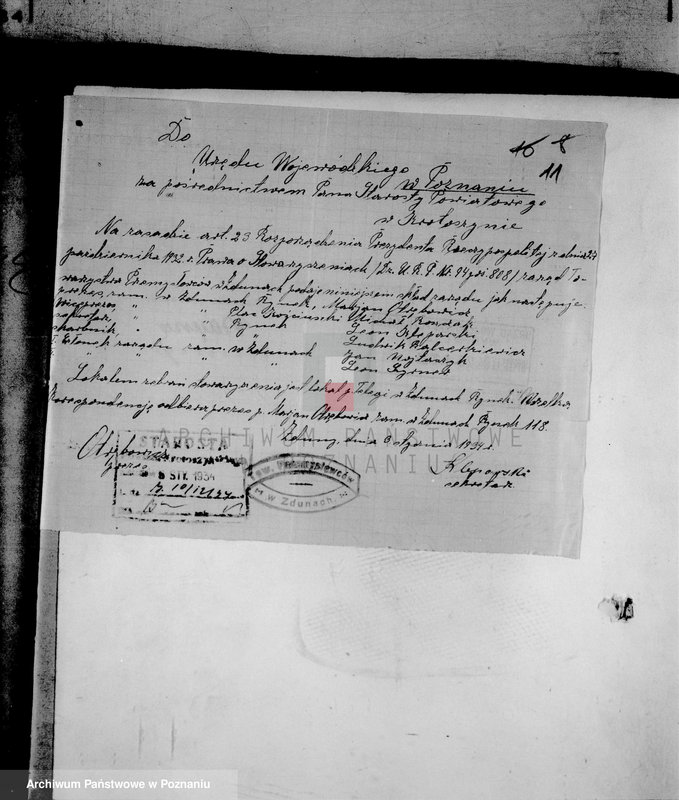 16 8
11
Do
Urzędu Wojewódzkiego
w Poznaniu
za pośrednictwem Pana Starosty Powiatowego
w Krotoszynie
Na zasadzie art. 23 Rozporządzenia Prezydenta Rzeczypospolitej z dnia 27
października 1932 r. Prawo o Stowarzyszeniach /Dz. U. R. P. Nr. 94 poz. 808/ zarząd To-
warzystwa Przemysłowców w Zdunach podaje niniejszem skład zarządu jak następuje:
prezes, zam. w Zdunach Rynek, Marjan
Wiceprezes " " Plac Kościuszki
sekretarz, " " Rynek Leon
skarbnik, " " " Ludwik
Członek zarządu zam. w Zdunach Jan
" " " " Leon
Lokalem zebrań stowarzyszenia jest lokal p. w Zdunach Rynek. Wszelką
korespondencję odbiera prezes p. Marjan zam. w Zdunach Rynek 118.
Zduny, dnia 3 stycznia 1934 r.
prezes
sekretarz
STAROSTA
8 STY. 1934
Tow. Przemysłowców
w Zdunach
ARCHIWUM PAŃSTWOWE
W POZNANIU
Archiwum Państwowe w Poznaniu